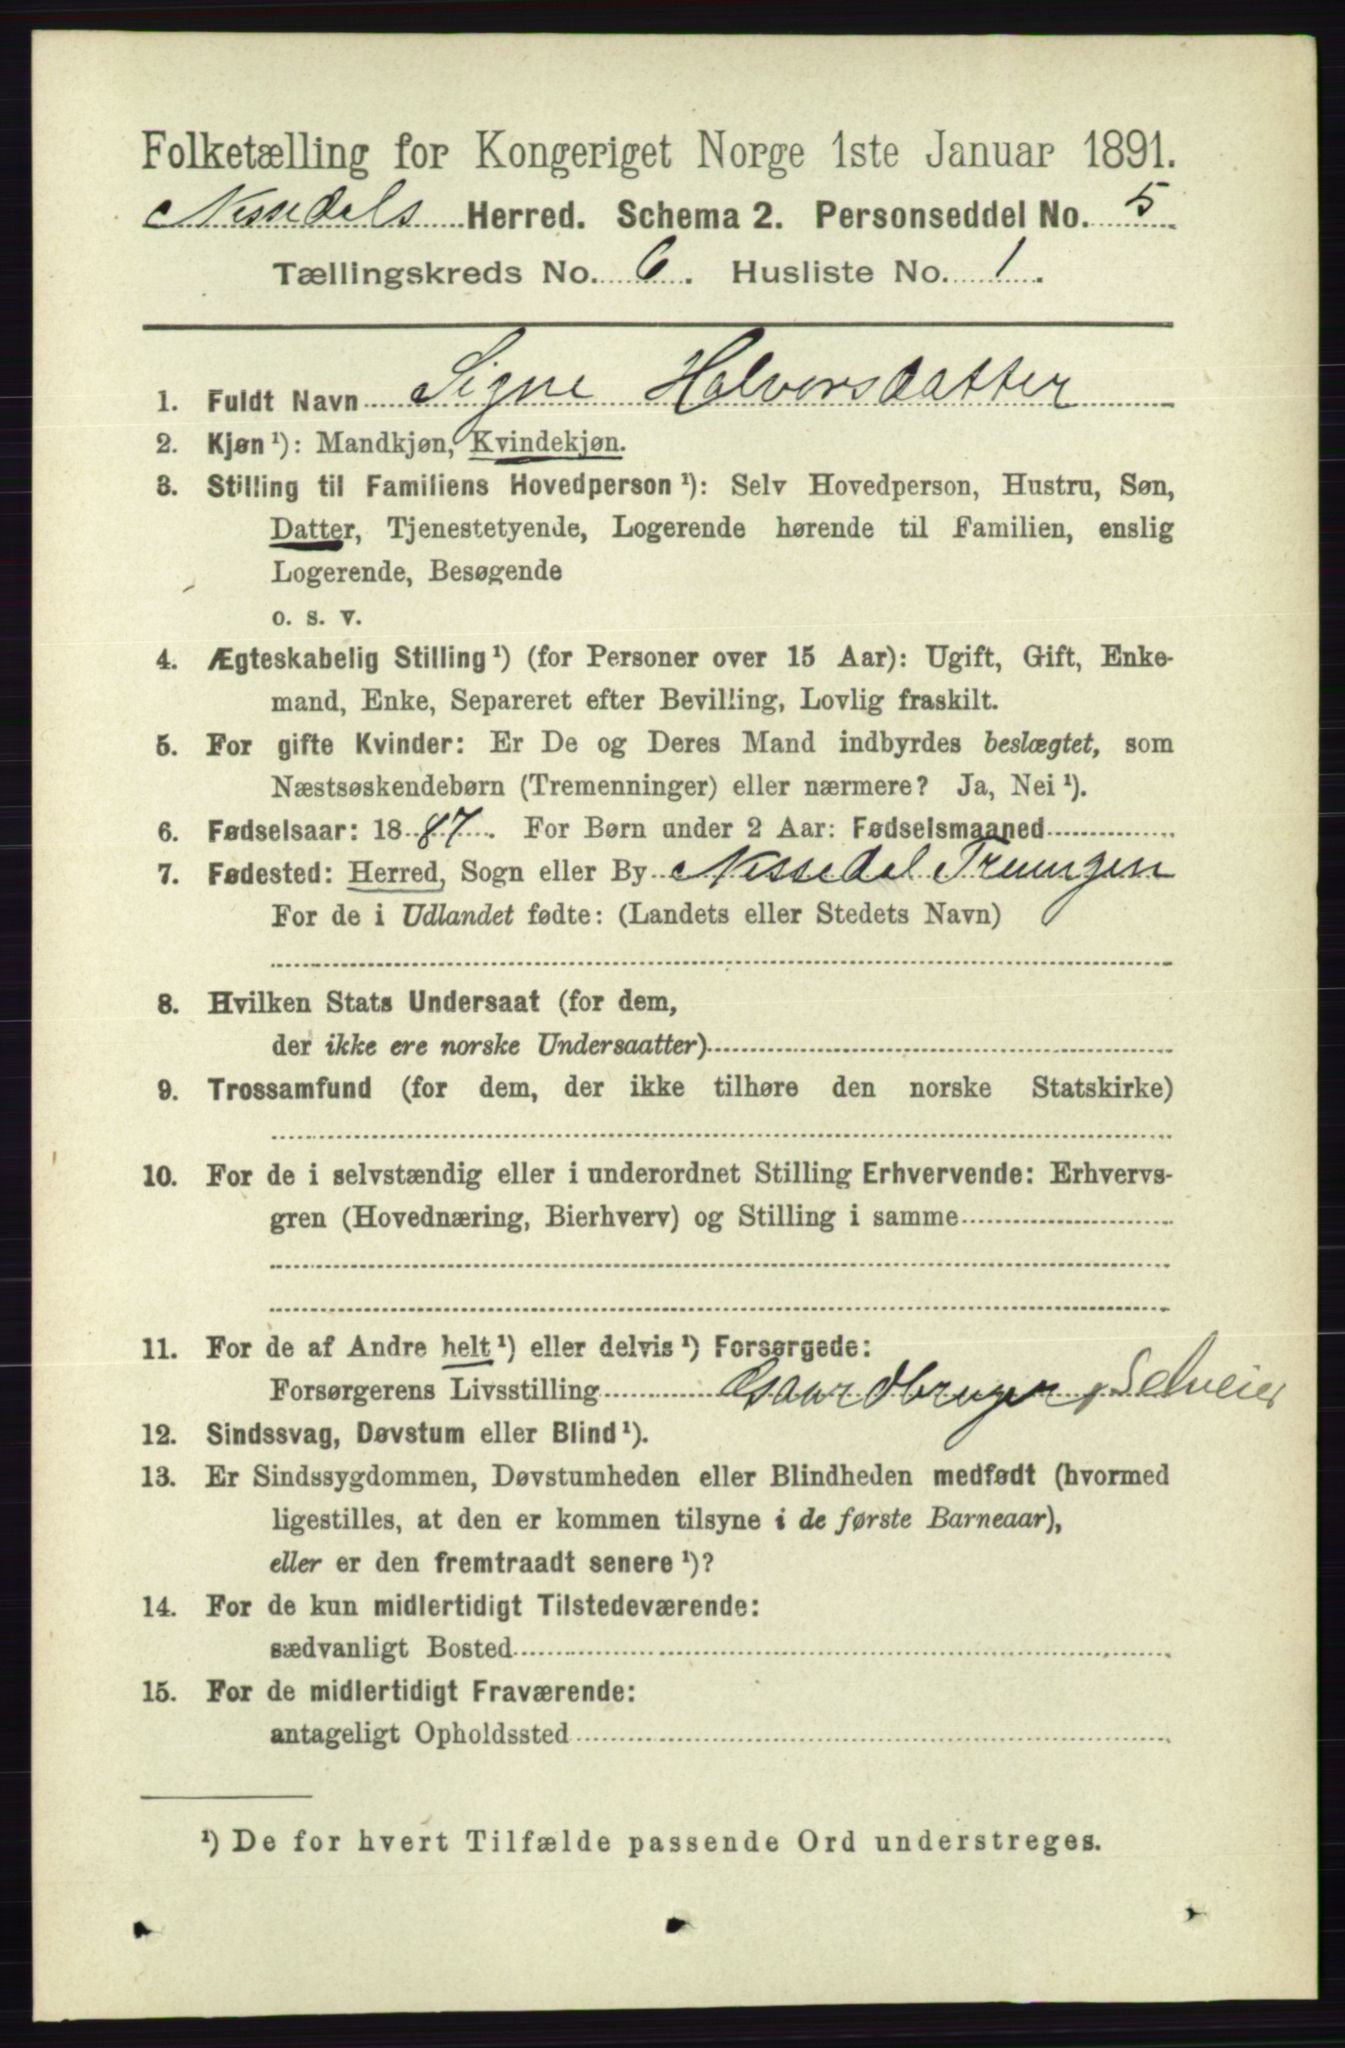 Folketælling for Kongeriget Norge 1ste Januar 1891.
Nissedals Herred. Schema 2. Personseddel No. 5
Tællingskreds No. 6. Husliste No. 1.
1. Fuldt Navn Signe Halvorsdatter
2. Kjøn ¹): Mandkjøn, Kvindekjøn.
3. Stilling til Familiens Hovedperson ¹): Selv Hovedperson, Hustru, Søn,
Datter, Tjenestetyende, Logerende hørende til Familien, enslig
Logerende, Besøgende
o. s. v.
4. Ægteskabelig Stilling ¹) (for Personer over 15 Aar): Ugift, Gift, Enke-
mand, Enke, Separeret efter Bevilling, Lovlig fraskilt.
5. For gifte Kvinder: Er De og Deres Mand indbyrdes beslægtet, som
Næstsøskendebørn (Tremenninger) eller nærmere? Ja, Nei ¹).
6. Fødselsaar: 1887. For Børn under 2 Aar: Fødselsmaaned
7. Fødested: Herred, Sogn eller By Nissedal Treungen
For de i Udlandet fødte: (Landets eller Stedets Navn)
8. Hvilken Stats Undersaat (for dem,
der ikke ere norske Undersaatter)
9. Trossamfund (for dem, der ikke tilhøre den norske Statskirke)
10. For de i selvstændig eller i underordnet Stilling Erhvervende: Erhvervs-
gren (Hovednæring, Bierhverv) og Stilling i samme
11. For de af Andre helt ¹) eller delvis ¹) Forsørgede:
Forsørgerens Livsstilling Gaardbruger, Selveier
12. Sindssvag, Døvstum eller Blind ¹).
13. Er Sindssygdommen, Døvstumheden eller Blindheden medfødt (hvormed
ligestilles, at den er kommen tilsyne i de første Barneaar),
eller er den fremtraadt senere ¹)?
14. For de kun midlertidigt Tilstedeværende:
sædvanligt Bosted
15. For de midlertidigt Fraværende:
antageligt Opholdssted
¹) De for hvert Tilfælde passende Ord understreges.